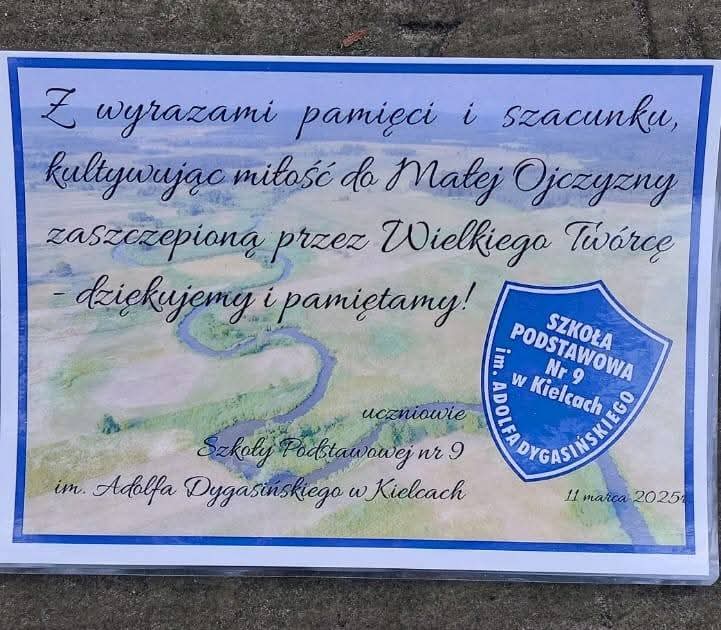 Z wyrazami pamięci i szacunku,
kultywując miłość do Małej Ojczyzny
zaszczepioną przez Wielkiego Twórcę
- dziękujemy i pamiętamy!
SZKOŁA
PODSTAWOWA
Nr 9
w Kielcach
im. ADOLFA DYGASIŃSKIEGO
uczniowie
Szkoły Podstawowej nr 9
im. Adolfa Dygasińskiego w Kielcach
11 marca 2025r